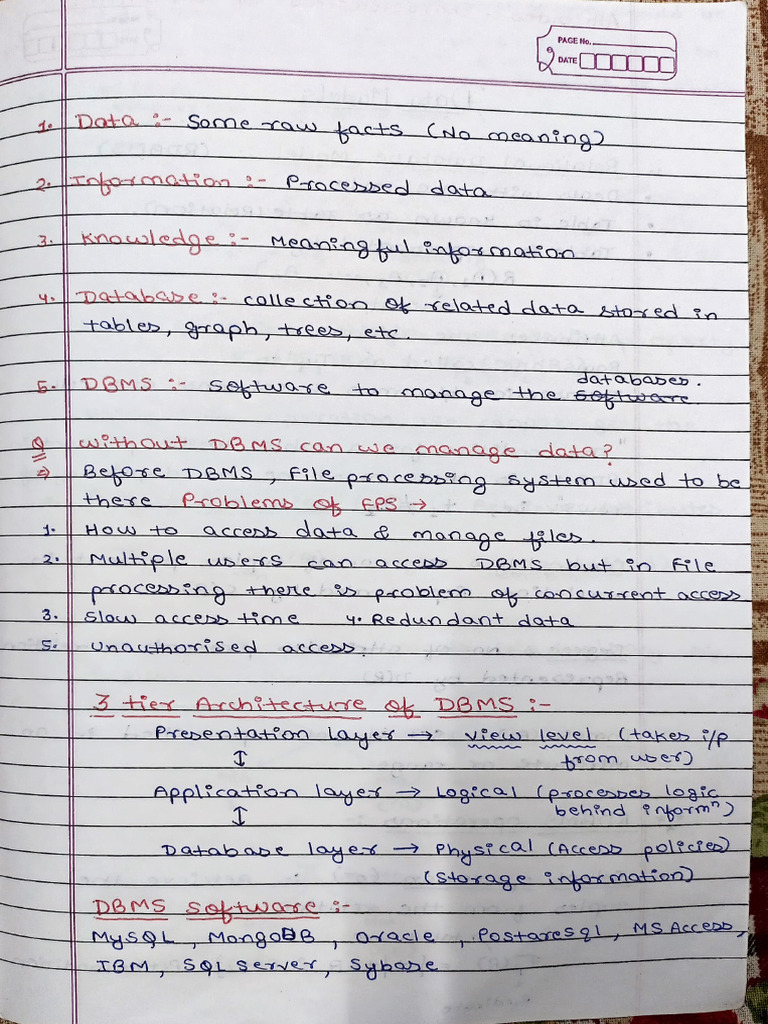 PAGE No.
DATE
2
1. Data :- Some raw facts (No meaning)
2. Information :- Processed data
3. Knowledge :- Meaningful information
4. Database :- collection of related data stored in
tables, graph, trees, etc.
databases.
5. DBMS :- software to manage the software
Q without DBMS can we manage data?
⇒ Before DBMS, File processing system used to be
there Problems of FPS →
1. How to access data & manage files.
2. Multiple users can access DBMS but in File
processing there is problem of concurrent access
3. Slow access time 4. Redundant data
5. Unauthorised access.
3 tier Architecture of DBMS :-
Presentation layer → view level (takes i/p
↕ from user)
Application layer → Logical (processes logic
↕ behind informⁿ)
Database layer → Physical (Access policies)
(Storage information)
DBMS Software :-
MySQL, MongoDB, Oracle, PostgreSql, MS Access,
IBM, SQL Server, Sybase